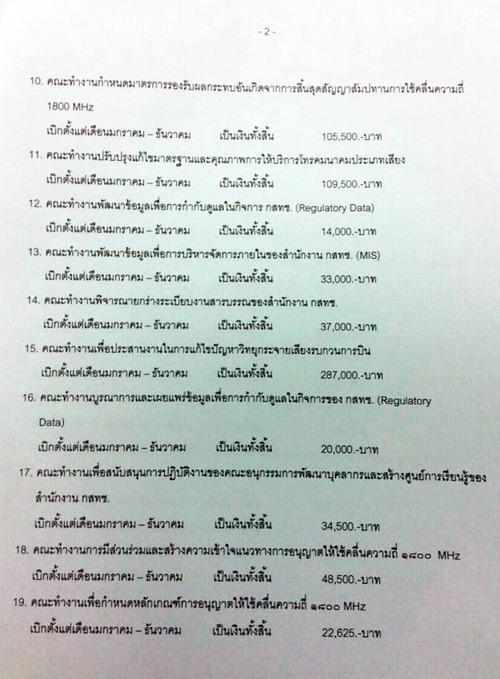 - 2 -
10. คณะทำงานกำหนดมาตรการรองรับผลกระทบอันเกิดจากการสิ้นสุดสัญญาสัมปทานการใช้คลื่นความถี่
1800 MHz
เบิกตั้งแต่เดือนมกราคม – ธันวาคม เป็นเงินทั้งสิ้น 105,500.-บาท
11. คณะทำงานปรับปรุงแก้ไขมาตรฐานและคุณภาพการให้บริการโทรคมนาคมประเภทเสียง
เบิกตั้งแต่เดือนมกราคม – ธันวาคม เป็นเงินทั้งสิ้น 109,500.-บาท
12. คณะทำงานพัฒนาข้อมูลเพื่อการกำกับดูแลในกิจการ กสทช. (Regulatory Data)
เบิกตั้งแต่เดือนมกราคม – ธันวาคม เป็นเงินทั้งสิ้น 14,000.-บาท
13. คณะทำงานพัฒนาข้อมูลเพื่อการบริหารจัดการภายในของสำนักงาน กสทช. (MIS)
เบิกตั้งแต่เดือนมกราคม – ธันวาคม เป็นเงินทั้งสิ้น 33,000.-บาท
14. คณะทำงานพิจารณายกร่างระเบียบงานสารบรรณของสำนักงาน กสทช.
เบิกตั้งแต่เดือนมกราคม – ธันวาคม เป็นเงินทั้งสิ้น 37,000.-บาท
15. คณะทำงานเพื่อประสานงานในการแก้ไขปัญหาวิทยุกระจายเสียงรบกวนการบิน
เบิกตั้งแต่เดือนมกราคม – ธันวาคม เป็นเงินทั้งสิ้น 287,000.-บาท
16. คณะทำงานบูรณาการและเผยแพร่ข้อมูลเพื่อการกำกับดูแลในกิจการของ กสทช. (Regulatory
Data)
เบิกตั้งแต่เดือนมกราคม – ธันวาคม เป็นเงินทั้งสิ้น 20,000.-บาท
17. คณะทำงานเพื่อสนับสนุนการปฏิบัติงานของคณะอนุกรรมการพัฒนาบุคลากรและสร้างศูนย์การเรียนรู้ของ
สำนักงาน กสทช.
เบิกตั้งแต่เดือนมกราคม – ธันวาคม เป็นเงินทั้งสิ้น 34,500.-บาท
18. คณะทำงานการมีส่วนร่วมและสร้างความเข้าใจแนวทางการอนุญาตให้ใช้คลื่นความถี่ ๑๘๐๐ MHz
เบิกตั้งแต่เดือนมกราคม – ธันวาคม เป็นเงินทั้งสิ้น 48,500.-บาท
19. คณะทำงานเพื่อกำหนดหลักเกณฑ์การอนุญาตให้ใช้คลื่นความถี่ ๑๘๐๐ MHz
เบิกตั้งแต่เดือนมกราคม – ธันวาคม เป็นเงินทั้งสิ้น 22,625.-บาท